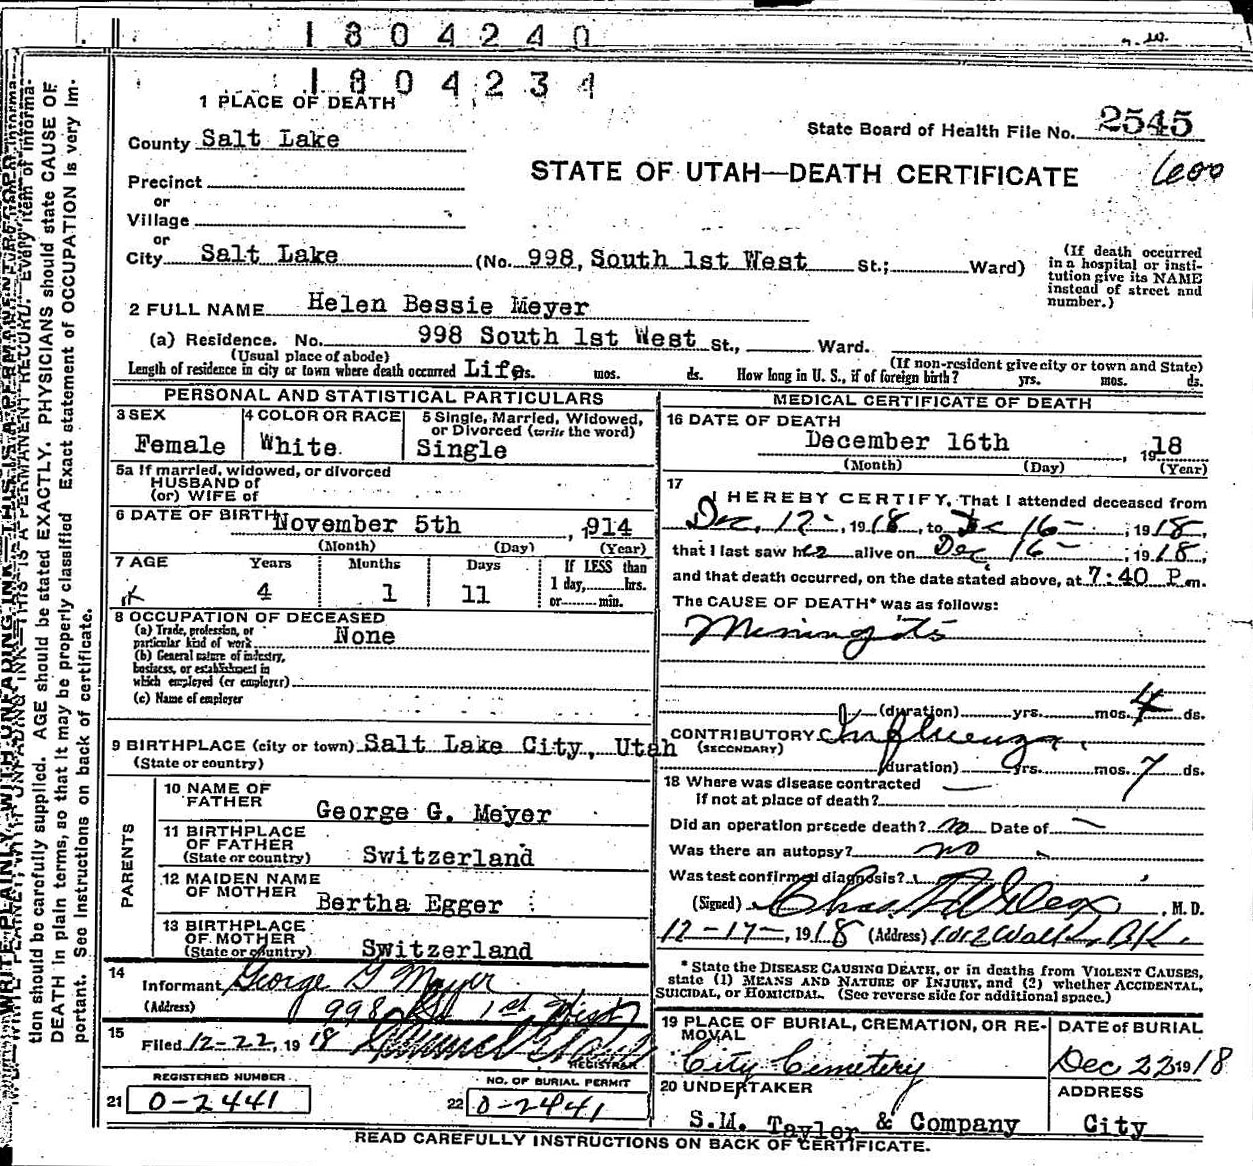 1804240
1804234
1 PLACE OF DEATH
County Salt Lake
State Board of Health File No. 2545
STATE OF UTAH—DEATH CERTIFICATE
600
Precinct
or
Village
or
City Salt Lake (No. 998, South 1st West St.; Ward)
(If death occurred in a hospital or insti-
tution give its NAME
instead of street and
number.)
2 FULL NAME Helen Bessie Meyer
(a) Residence. No. 998 South 1st West St., Ward.
(Usual place of abode) (If non-resident give city or town and State)
Length of residence in city or town where death occurred Life mos. ds. How long in U. S., if of foreign birth? yrs. mos. ds.
PERSONAL AND STATISTICAL PARTICULARS
3 SEX
Female
4 COLOR OR RACE
White
5 Single, Married, Widowed,
or Divorced (write the word)
Single
5a If married, widowed, or divorced
HUSBAND of
(or) WIFE of
6 DATE OF BIRTH November 5th, 1914
(Month) (Day) (Year)
7 AGE Years Months Days If LESS than
1 day, hrs.
or min.
4 1 11
8 OCCUPATION OF DECEASED
(a) Trade, profession, or
particular kind of work None
(b) General nature of industry,
business, or establishment in
which employed (or employer)
(c) Name of employer
9 BIRTHPLACE (city or town) Salt Lake City, Utah
(State or country)
PARENTS
10 NAME OF
FATHER George G. Meyer
11 BIRTHPLACE
OF FATHER
(State or country) Switzerland
12 MAIDEN NAME
OF MOTHER Bertha Egger
13 BIRTHPLACE
OF MOTHER
(State or country) Switzerland
14
Informant George G Meyer
(Address) 998 So 1st West
15
Filed 12-22, 1918
REGISTRAR
REGISTERED NUMBER
21 0-2441
NO. OF BURIAL PERMIT
22 0-2441
MEDICAL CERTIFICATE OF DEATH
16 DATE OF DEATH
December 16th, 1918
(Month) (Day) (Year)
17
I HEREBY CERTIFY, That I attended deceased from
Dec. 12-, 1918, to Dec 16-, 1918,
that I last saw her alive on Dec 16-, 1918,
and that death occurred, on the date stated above, at 7:40 P.m.
The CAUSE OF DEATH* was as follows:
Miningitis
(duration) yrs. mos. 4 ds.
CONTRIBUTORY Influenza
(SECONDARY)
(duration) yrs. mos. 7 ds.
18 Where was disease contracted
if not at place of death? —
Did an operation precede death? no Date of —
Was there an autopsy? no
Was test confirmed diagnosis?
(Signed) Chas F Wilcox, M. D.
12-17-, 1918 (Address) 1012 Walker Bk.
* State the DISEASE CAUSING DEATH, or in deaths from VIOLENT CAUSES,
state (1) MEANS AND NATURE OF INJURY, and (2) whether ACCIDENTAL,
SUICIDAL, or HOMICIDAL. (See reverse side for additional space.)
19 PLACE OF BURIAL, CREMATION, OR RE-
MOVAL
City Cemetery
DATE of BURIAL
Dec 22 1918
20 UNDERTAKER
S.M. Taylor & Company
ADDRESS
City
READ CAREFULLY INSTRUCTIONS ON BACK OF CERTIFICATE.
WRITE PLAINLY, WITH UNFADING INK—THIS IS A PERMANENT RECORD. Every item of informa-
tion should be carefully supplied. AGE should be stated EXACTLY. PHYSICIANS should state CAUSE OF
DEATH in plain terms, so that it may be properly classified Exact statement of OCCUPATION is very im-
portant. See Instructions on back of certificate.